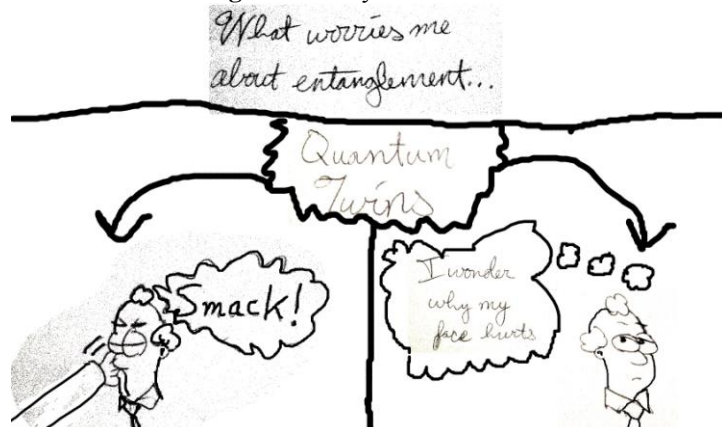 What worries me
about entanglement...
Quantum
Twins
Smack!
I wonder
why my
face hurts